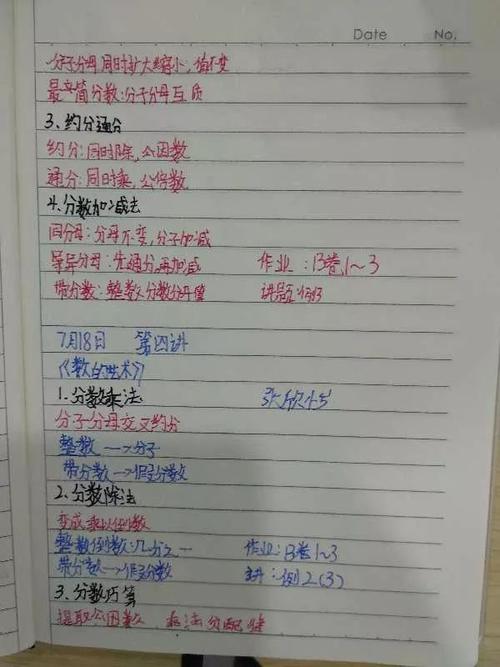 Date No.
分子分母同时扩大缩小,值不变
最简分数:分子分母互质
3、约分通分
约分:同时除,公因数
通分:同时乘,公倍数
4、分数加减法
同分母:分母不变,分子加减
异分母:先通分,再加减 作业:B卷1~3
带分数:整数分数分开算 讲题:例3
7月18日 第四讲
《数的艺术》
1、分数乘法
分子分母交叉约分
整数→分子
带分数→假分数
2、分数除法
变成乘以倒数
整数倒数:几分之一 作业:B卷1~3
带分数→假分数 主讲:例2(3)
3、分数巧算
提取公因数 乘法分配律